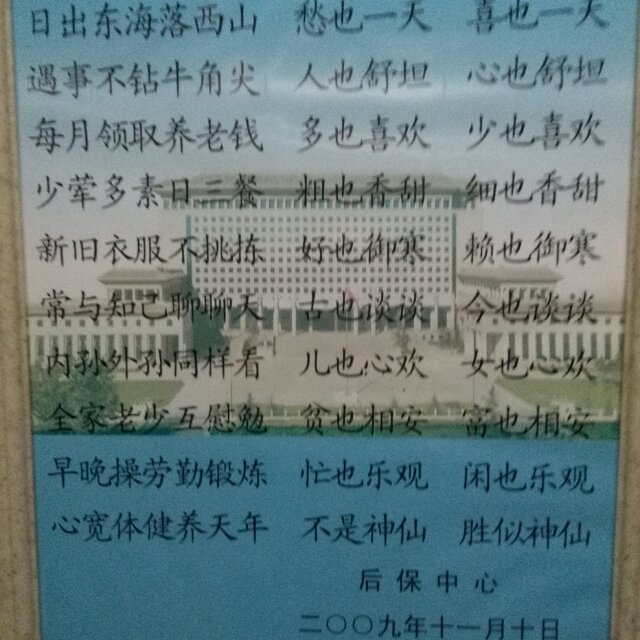 日出东海落西山 愁也一天 喜也一天
遇事不钻牛角尖 人也舒坦 心也舒坦
每月领取养老钱 多也喜欢 少也喜欢
少荤多素日三餐 粗也香甜 细也香甜
新旧衣服不挑拣 好也御寒 赖也御寒
常与知己聊聊天 古也谈谈 今也谈谈
内孙外孙同样看 儿也心欢 女也心欢
全家老少互慰勉 贫也相安 富也相安
早晚操劳勤锻炼 忙也乐观 闲也乐观
心宽体健养天年 不是神仙 胜似神仙
后保中心
二〇〇九年十一月十日